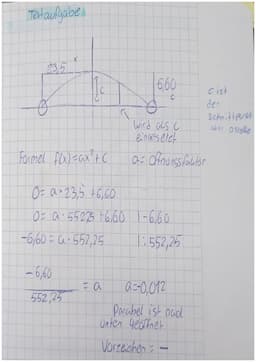 Textaufgabe
23,5
x
c
6,60
c
wird als c
eingesetzt
c ist
der
Schnittpunkt
Formel f(x)=ax²+c a= Öffnungsfaktor
0= a·23,5 +6,60
0= a·552,25+6,60 |-6,60
-6,60= a·552,25 |:552,25
-6,60
552,25
= a a=-0,012
Parabel ist nach
unten geöffnet
Vorzeichen = -